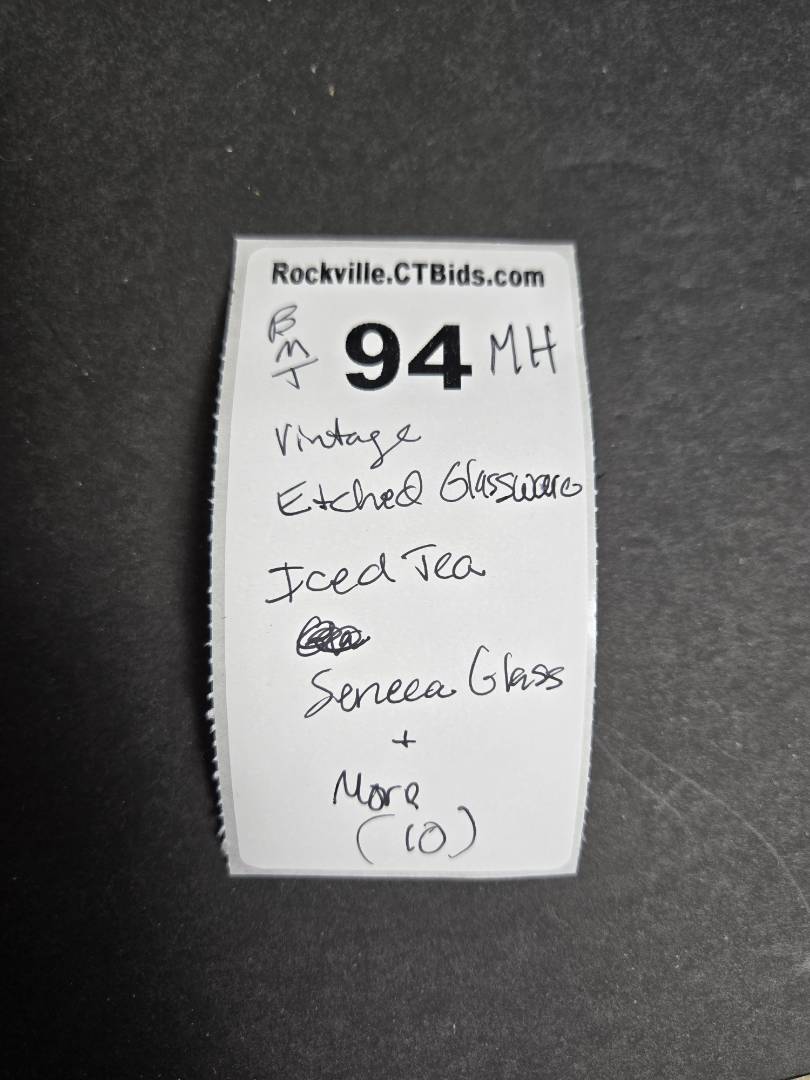 Rockville.CTBids.com
BMJ 94 MH
Vintage
Etched Glassware
Iced Tea
Seneca Glass
+
More
(10)